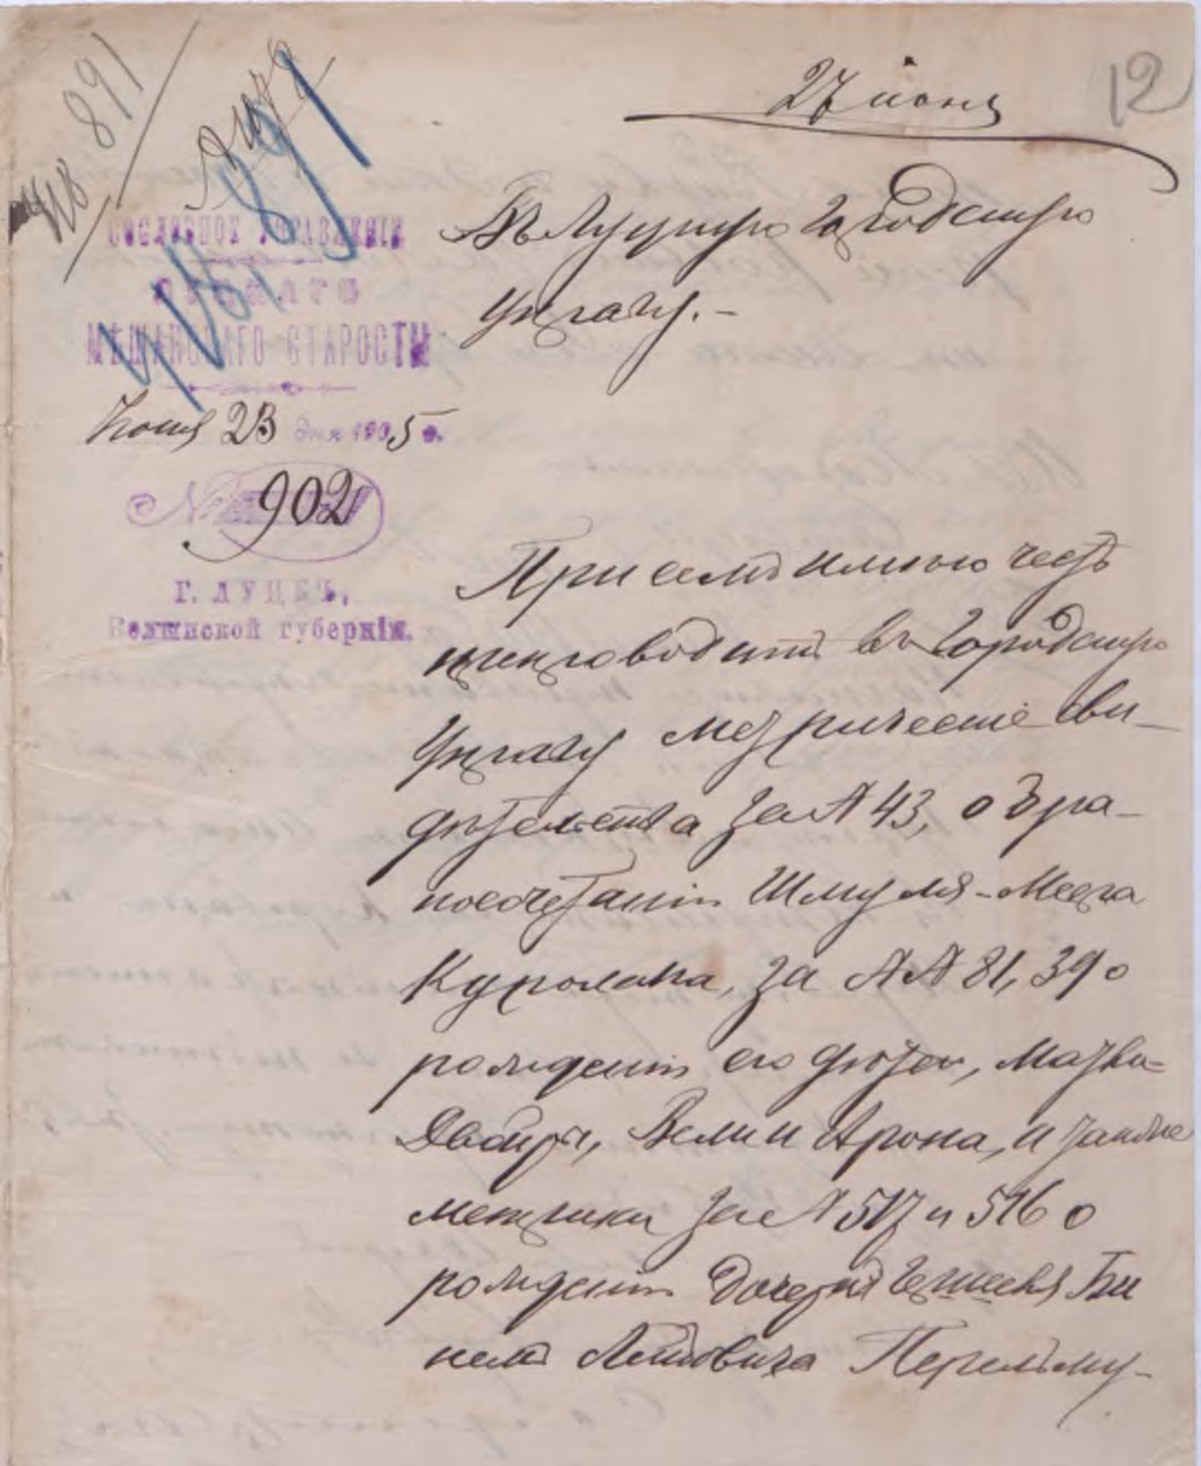 27 июня
12
№ 891
№ 891
СОСЛОВНОЕ УПРАВЛЕНІЕ
ЛУЦКАГО
МѢЩАНСКАГО СТАРОСТЫ
Іюня 23 дня 1905 г.
№ 902
Г. ЛУЦКЪ,
Волынской губерніи.
Въ Луцкую Городскую
Управу. –
При семъ имѣю честь
препроводить въ Городскую
Управу метрическіе сви-
дѣтельства за № 43, о бра-
косочетаніи Шмуля-Меера
за №№ 81, 39 о
рожденіи его дѣтей,
Двойры, Вели и Арона, и также
метрики за № 517 и 516 о
рожденіи дочерей Гершона Би
немъ Лейбовича Перельму-